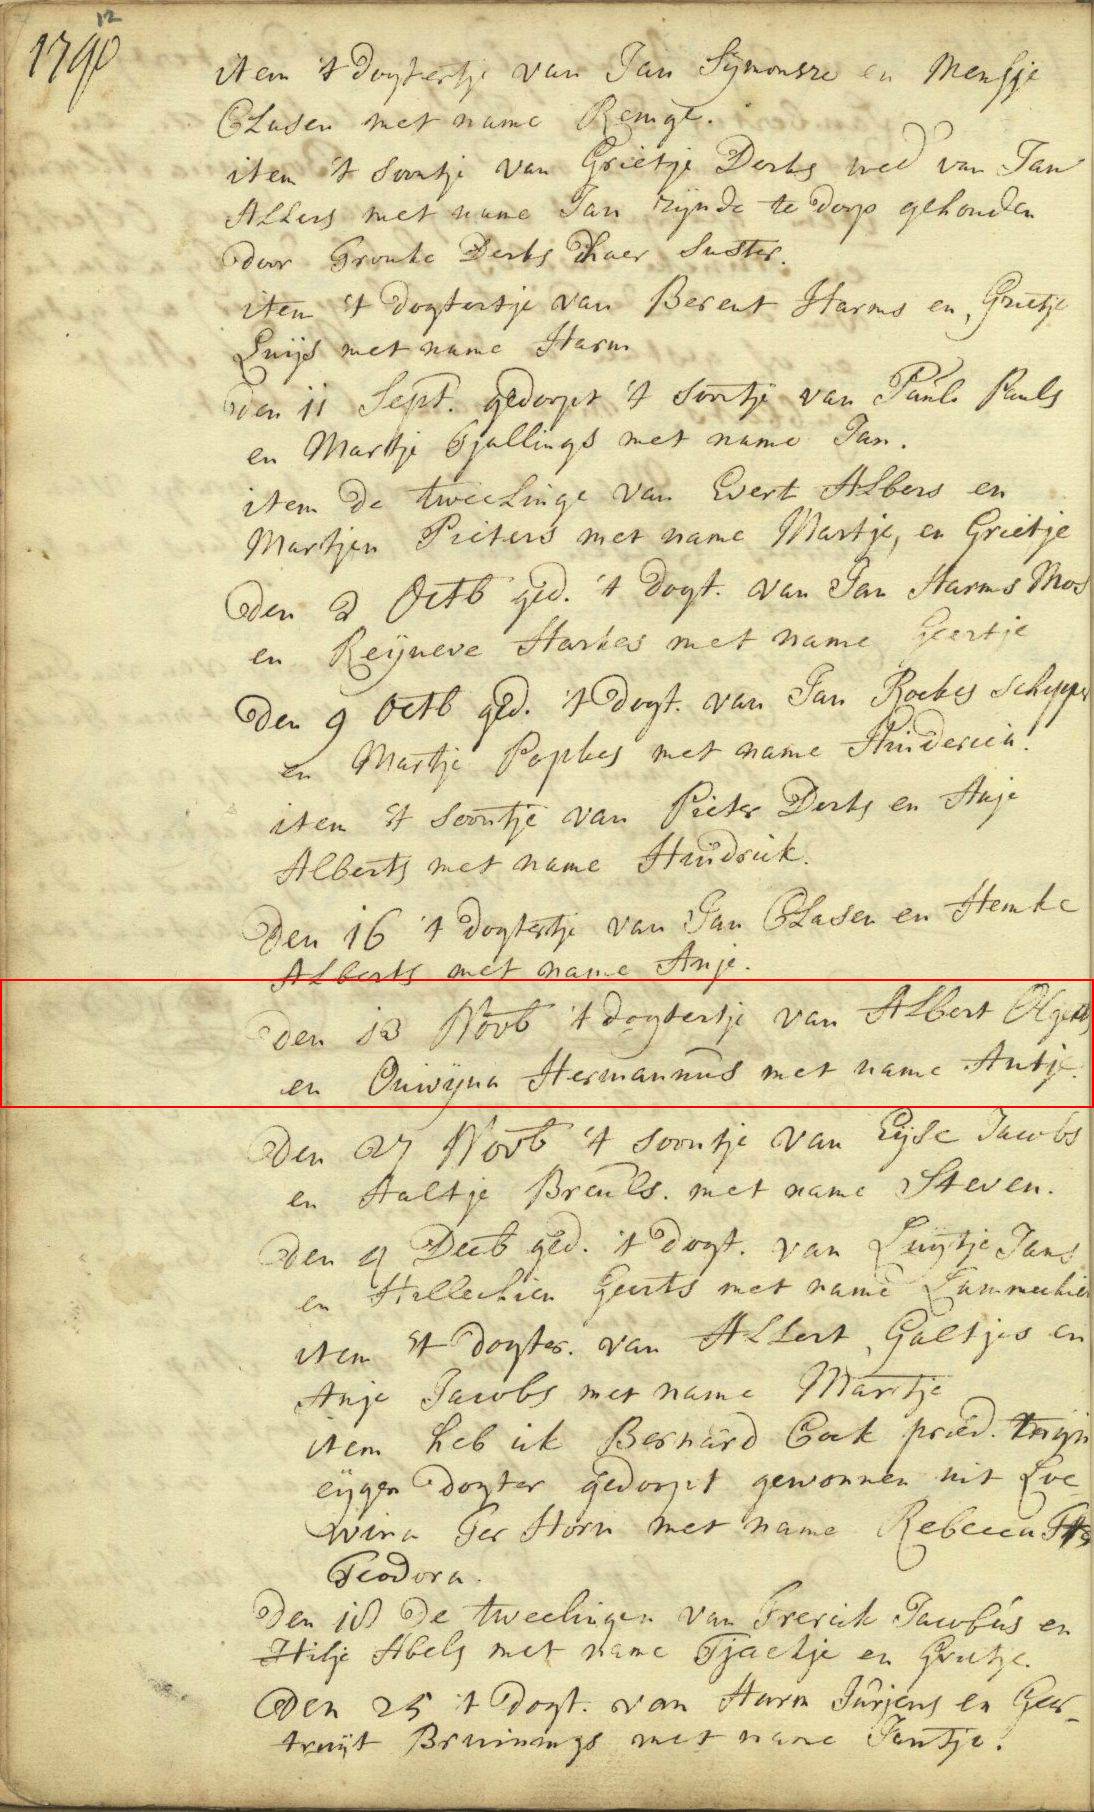 12
1790
item 't dogtertje van Jan Sijmonsze en Mensje
Clasen met name Remge.
item 't soontje van Grietje Derks wed van Jan
Allers met name Jan zijnde te doop gehouden
door Frouke Derks haer suster.
item 't dogtertje van Berent Harms en Grietje
Luijs met name Harm
den 11 Sept. gedoopt 't soontje van Pauls Pauls
en Martje Tjallings met name Jan.
item de tweelinge van Evert Albers en
Martjen Pieters met name Martje, en Grietje
Den 2 Octb ged. 't dogt. van Jan Harms Mos
en Reijneve Harkes met name Geertje
Den 9 Octb ged. 't dogt. van Jan Roelfs Schipper
en Martje Popkes met name Hinderica.
item 't soontje van Pieter Derks en Anje
Alberts met name Hindrik.
Den 16 't dogtertje van Jan Clasen en Hemke
Alberts met name Anje.
Den 13 Novb 't dogtertje van Albert Olgerts
en Ouwijna Hermannus met name Antje.
Den 27 Novb 't soontje van Eijse Jacobs
en Aaltje Breuls. met name Steven.
Den 4 Decb ged. 't dogt. van Luijtje Jans
en Hillechien Geerts met name Lammechien
item 't dogter. van Allert Galtjes en
Anje Jacobs met name Martje
item heb ik Bernard Cock præd. mijn
eijgen dogter gedoopt gewonnen uit Loe
wina Ter Horn met name Rebecca
Teodora.
Den 18 De tweelingen van Frerick Jacobus en
Hilje Abels met name Tjaetje en Grietje.
Den 25 't dogt. van Harm Jurjens en Geer-
truijt Bruinings met name Jantje.